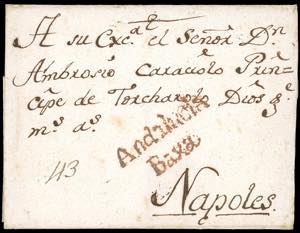 A su Exc.ª el Señor Dn
Ambrosio Caraciolo Prin=
cipe de Torcharolo Dios g.e
m.s a.s
Andalucia
Baxa
43
Napoles.